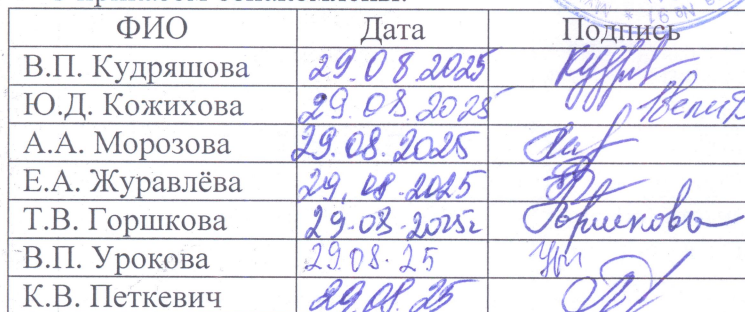 ФИО Дата Подпись
В.П. Кудряшова 29.08.2025
Ю.Д. Кожихова 29.08.2025
А.А. Морозова 29.08.2025
Е.А. Журавлёва 29.08.2025
Т.В. Горшкова 29.08.2025г Горшкова
В.П. Урокова 29.08.25
К.В. Петкевич 29.08.25